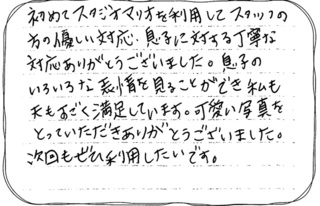 初めてスタジオマリオを利用してスタッフの
方の優しい対応、息子に対する丁寧な
対応ありがとうございました。息子の
いろいろな表情を見ることができ私も
夫もすごく満足しています。可愛い写真を
とっていただきありがとうございました。
次回もぜひ利用したいです。